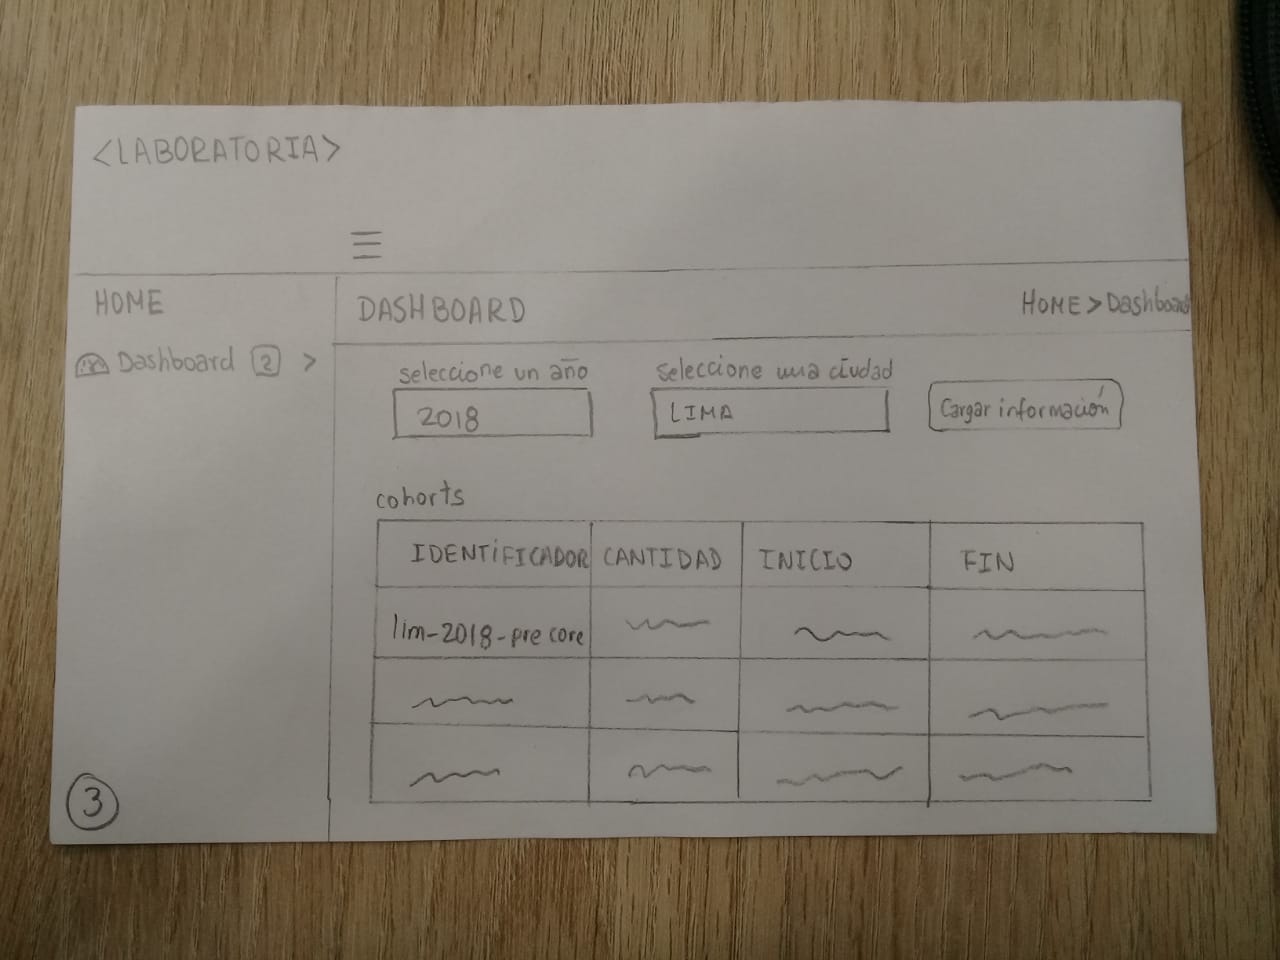 <LABORATORIA>
HOME
Dashboard 2 >
DASHBOARD
HOME > Dashboard
seleccione un año
seleccione una ciudad
2018
LIMA
Cargar información
cohorts
IDENTIFICADOR CANTIDAD INICIO FIN
lim-2018-pre core
3